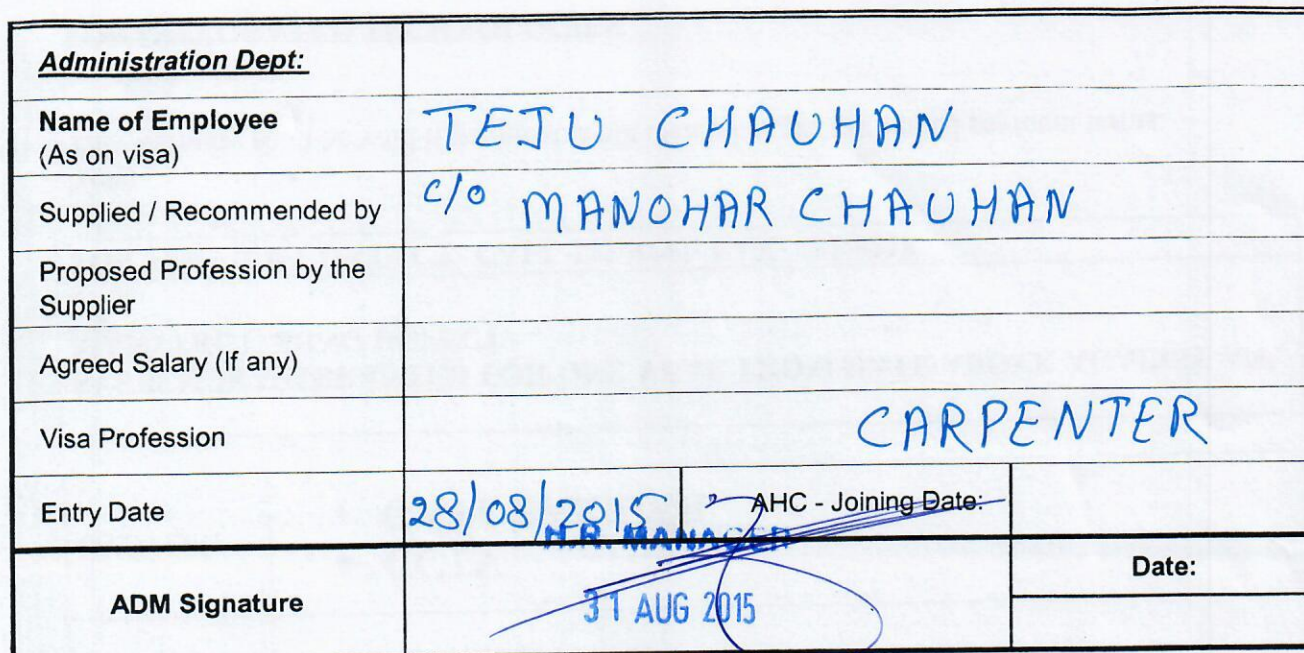 Administration Dept:
Name of Employee
(As on visa)
TEJU CHAUHAN
Supplied / Recommended by
c/o MANOHAR CHAUHAN
Proposed Profession by the
Supplier
Agreed Salary (If any)
Visa Profession
CARPENTER
Entry Date
28/08/2015
AHC - Joining Date:
H.R. MANAGER
ADM Signature
31 AUG 2015
Date: